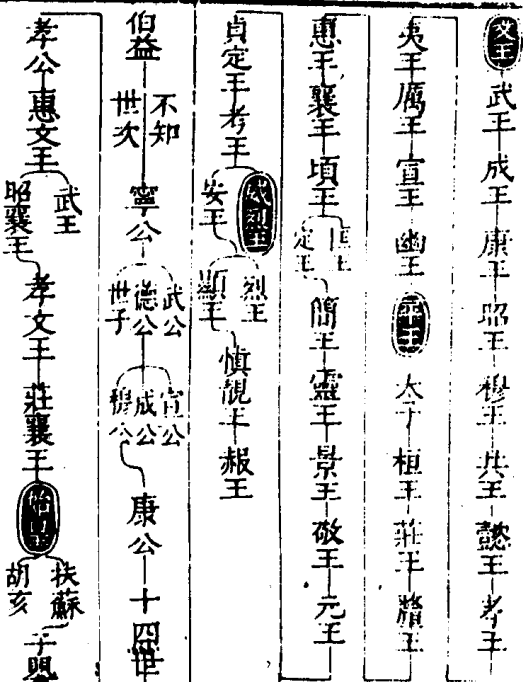 文王 武王 成王 康王 昭王 穆王 共王 懿王 孝王
夷王 厲王 宣王 幽王 平王 太子 桓王 莊王 釐王
惠王 襄王 頃王 匡王 定王 簡王 靈王 景王 敬王 元王
貞定王 考王 威烈王 安王 烈王 顯王 慎靚王 赧王
伯益 不知世次 寧公 武公 德公 世子 宣公 成公 穆公 康公 十四世
孝公 惠文王 武王 昭襄王 孝文王 莊襄王 始皇 扶蘇 胡亥 子嬰